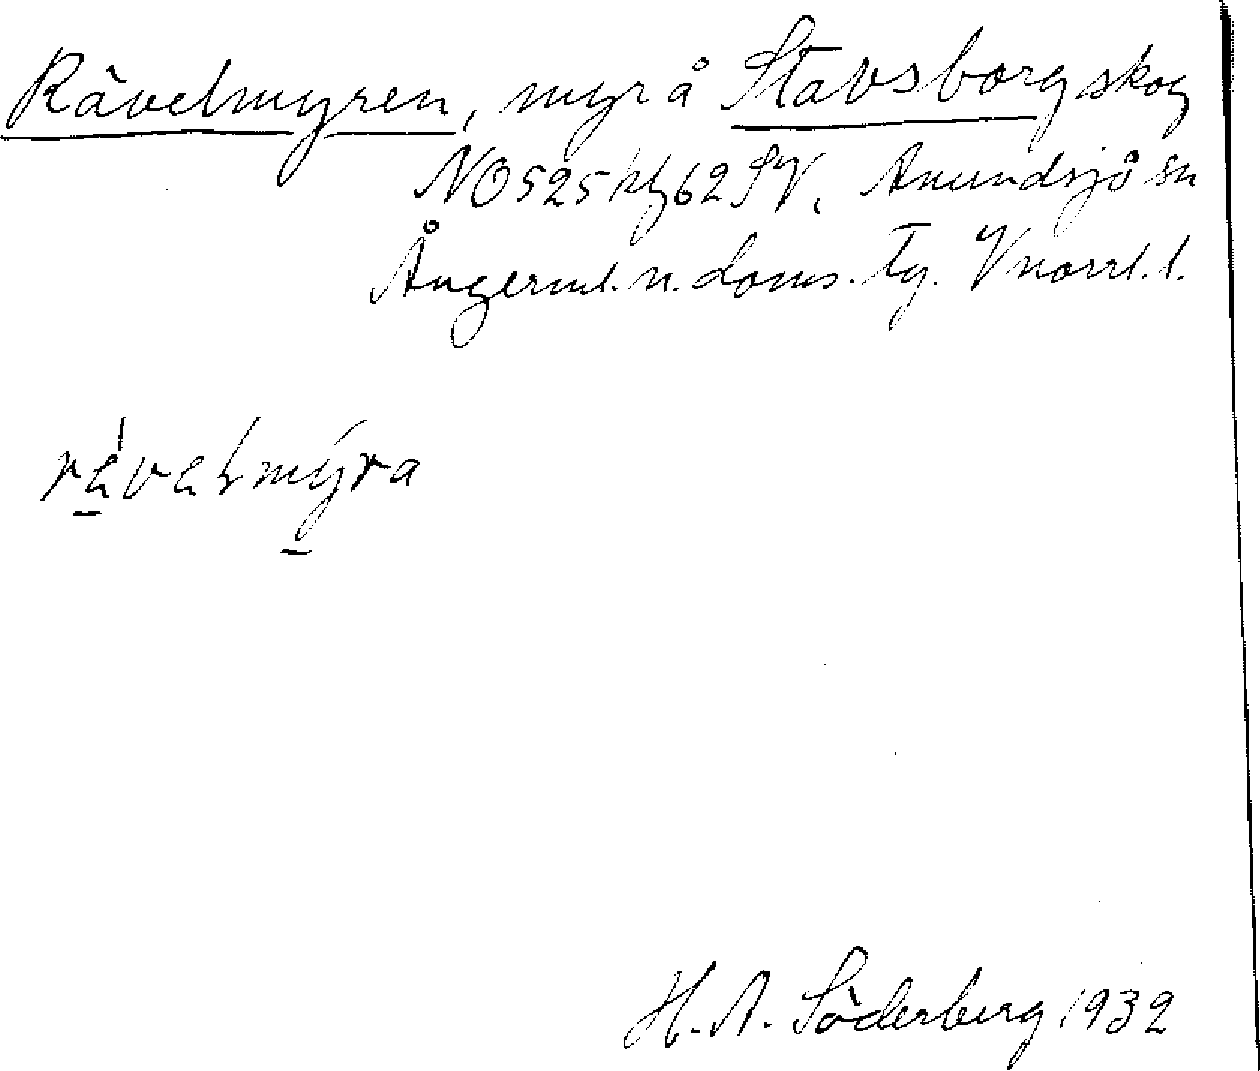 Rävelmyren, myr å Stavsborg skog
NO 525 kbl 62 SV, Anundsjö sn
Ångerml. n. doms. Tg. Vnorrl. l.
rävelmýra
H. A. Söderberg 1932